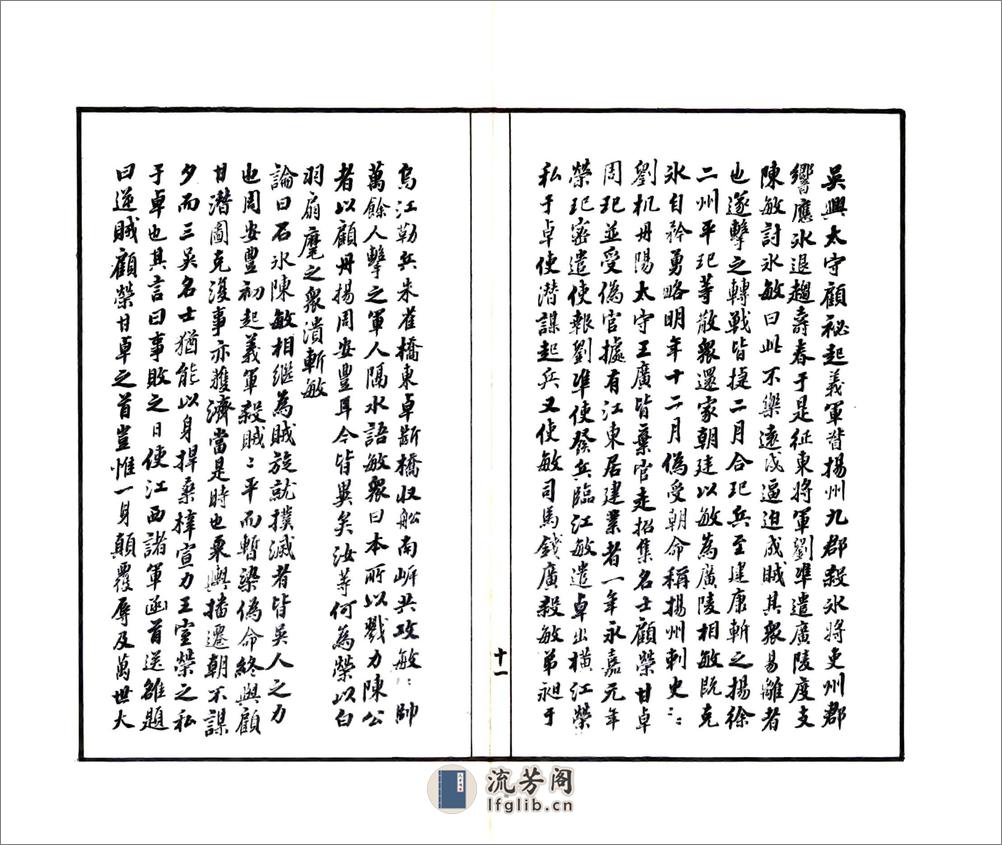 吳興太守顧祕起義軍督揚州九郡殺氷將吏州郡
響應氷退趨壽春于是征東將軍劉準遣廣陵度支
陳敏討氷敏曰此不樂遠戍逼迫成賊其衆易離者
也遂擊之轉戰皆捷二月合玘兵至建康斬之揚徐
二州平玘等散衆還家朝廷以敏為廣陵相敏既克
氷自矜勇略明年十二月偽受朝命稱揚州刺史〻
劉机丹陽太守王廣皆棄官走招集名士顧榮甘卓
周玘並受偽官據有江東居建業者一年永嘉元年
榮玘密遣使報劉準使發兵臨江敏遣卓出橫江榮
私于卓使潛謀起兵又使敏司馬錢廣殺敏弟昶于
烏江勒兵朱雀橋東卓斷橋收船南岍共攻敏〻帥
萬餘人擊之軍人隔水語敏衆曰本所以戮力陳公
者以顧丹揚周安豐耳今皆異矣汝等何為榮以白
羽扇麾之衆潰斬敏
論曰石氷陳敏相繼為賊旋就撲滅者皆吳人之力
也周安豐初起義軍殺賊〻平而暫染偽命終與顧
甘潛圖克復事亦獲濟當是時也乘輿播遷朝不謀
夕而三吳名士猶能以身捍桑梓宣力王室榮之私
于卓也其言曰事敗之日使江西諸軍函首送雒題
曰逆賊顧榮甘卓之首豈惟一身顛覆辱及萬世大
十一
流芳阁
lfglib.cn